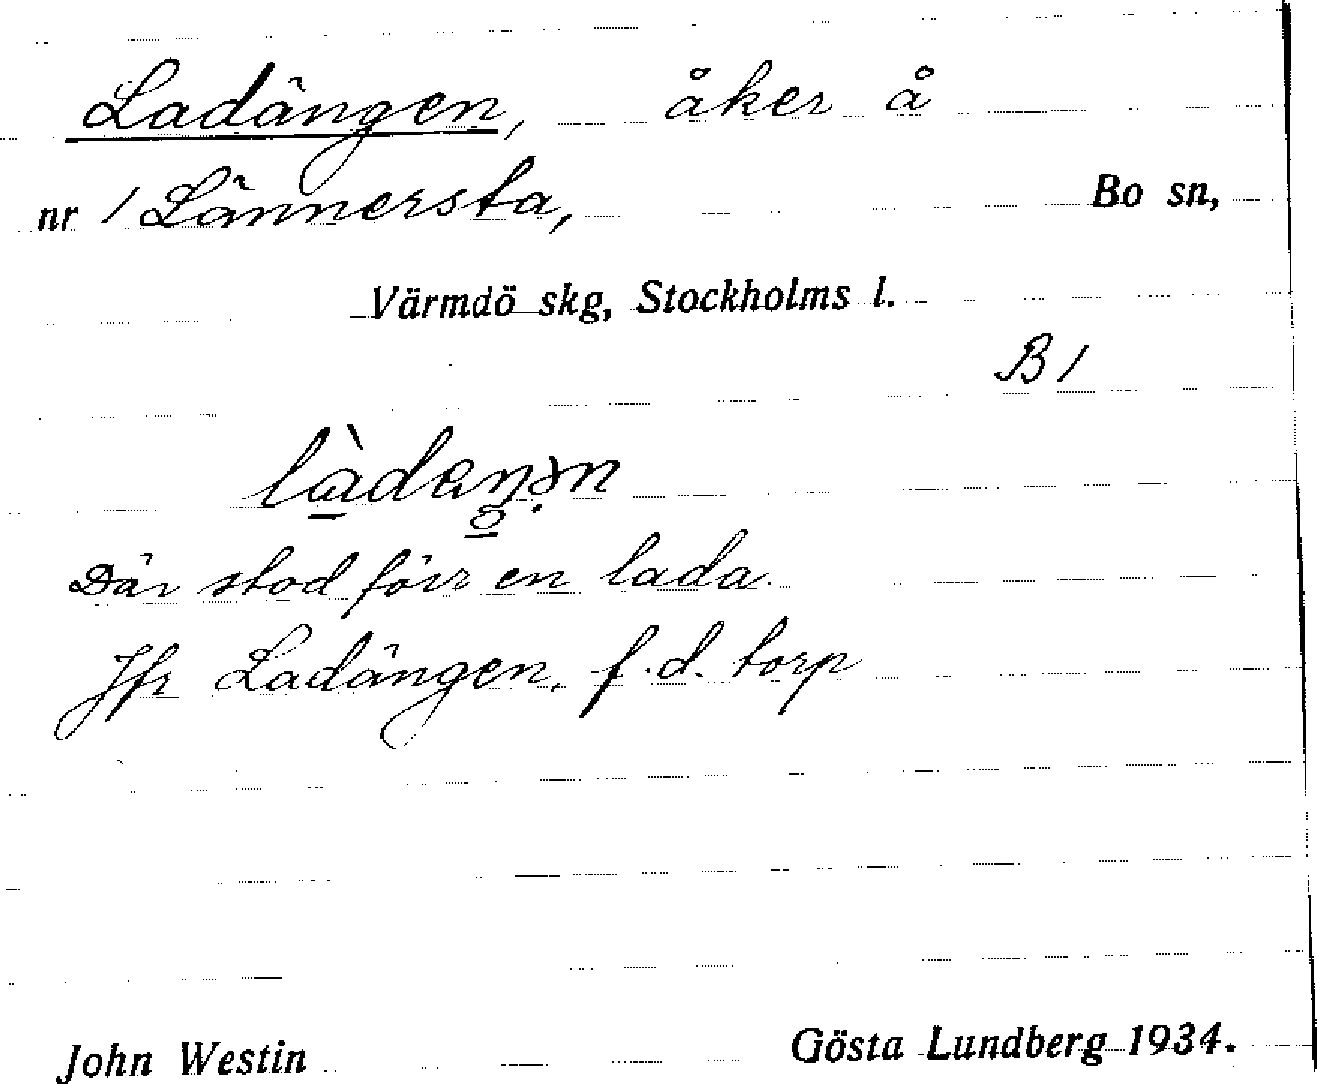 Ladängen, åker å
nr 1 Lännersta, Bo sn,
Värmdö skg, Stockholms l.
B 1
Där stod förr en lada.
Jfr Ladängen, f.d. torp
John Westin Gösta Lundberg 1934.